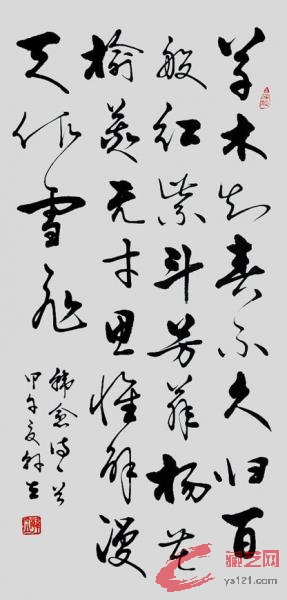 草木知春不久归百
般红紫斗芳菲杨花
榆荚无才思惟解漫
天作雪飞
韩愈诗一首
甲午夏
藏艺网
ys121.com